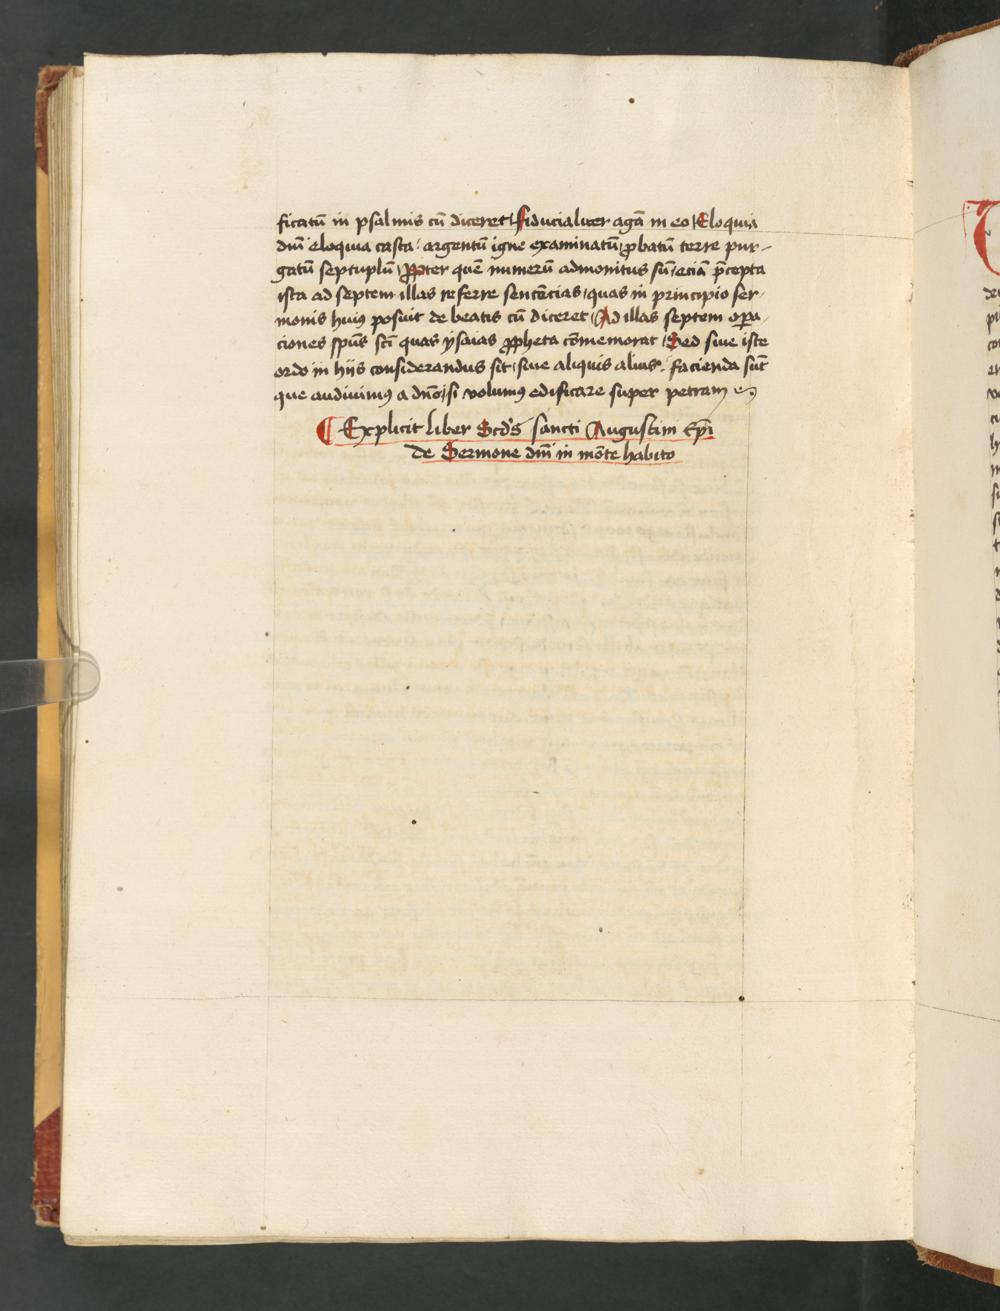 ficatū in psalmis cū diceret / Fiducialiter agā in eo / Eloquia
dnī eloquia casta / argentū igne examinatū / ꝓbatū terre pur-
gatū septuplū / Propter quē numerū admonitus sū / eciā p̄cepta
ista ad septem illas referre sentēcias / quas in principio ser-
monis huiꝰ posuit de beatis cū diceret / Ad illas septem oꝑa-
ciones spūs scī quas ysaias ꝓpheta cōmemorat / Sed siue iste
ordo in hijs considerandus sit / siue aliquis alius. facienda sūt
que audiuimꝰ a dnō / si volumꝰ edificare super petram
¶ Explicit liber Scd's sancti Augustini Ep̄i
de Sermone dnī in mōte habito